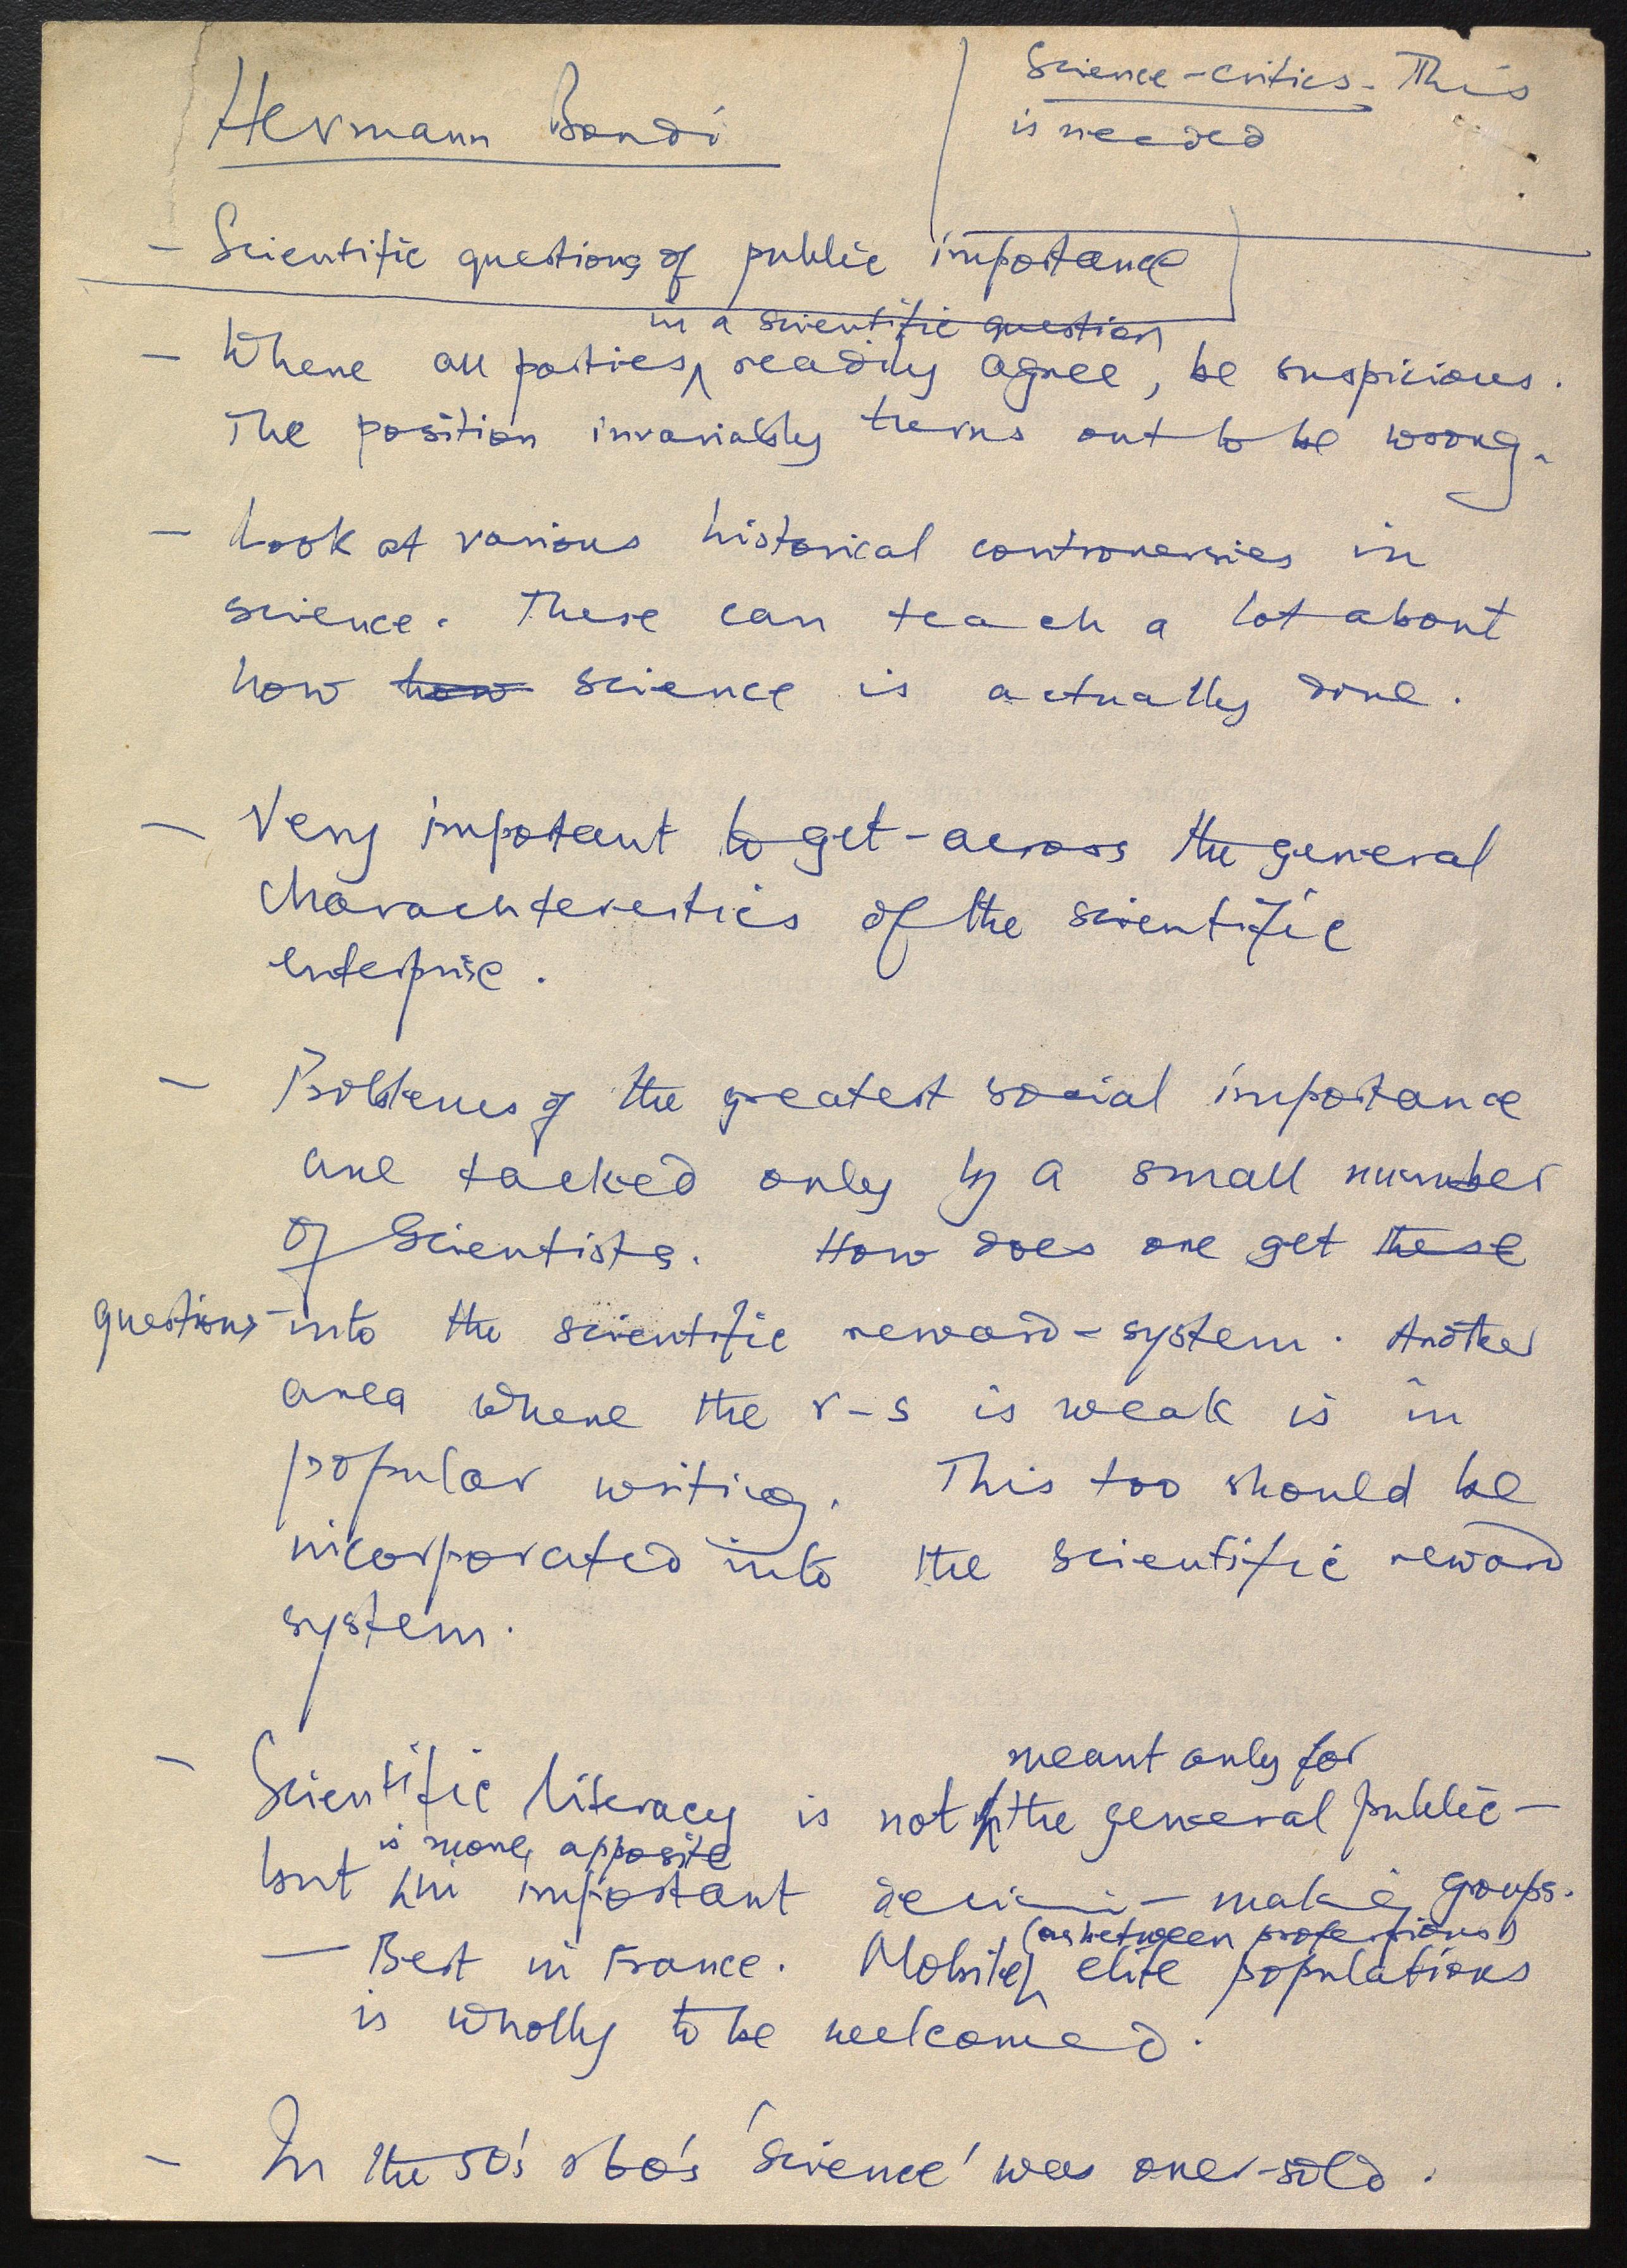 Hermann Bondi
Science-critics. This
is needed
- Scientific questions of public importance
in a scientific question
- Where all parties readily agree, be suspicious.
The position invariably turns out to be wrong.
- Look at various historical controversies in
science. These can teach a lot about
how how science is actually done.
- Very important to get-across the general
charachterestics of the scientific
enterprise.
- Problems of the greatest social importance
are tackled only by a small number
of Scientists. How does one get these
questions into the scientific reward-system. Another
area where the r-s is weak is in
popular writing. This too should be
incorporated into the scientific reward
system.
meant only for
- Scientific literacy is not the general public -
is more apposite
but in important decision-making groups.
(as between professions)
- Best in France. Mobile elite populations
is wholly to be welcomed.
- In the 50's & 60's 'Science' was over-sold.